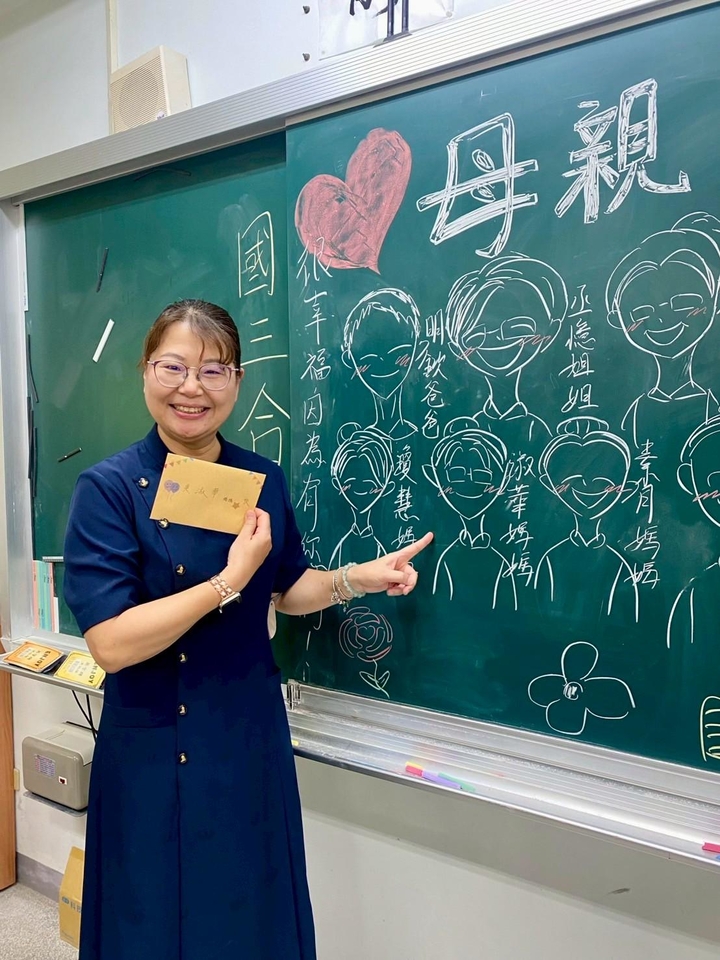 母親
國三合
很幸福因為有你
明欽爸爸
丞憶姐姐
慧媽
淑華媽媽
月媽媽
淑華
ENJOY
ENJOY